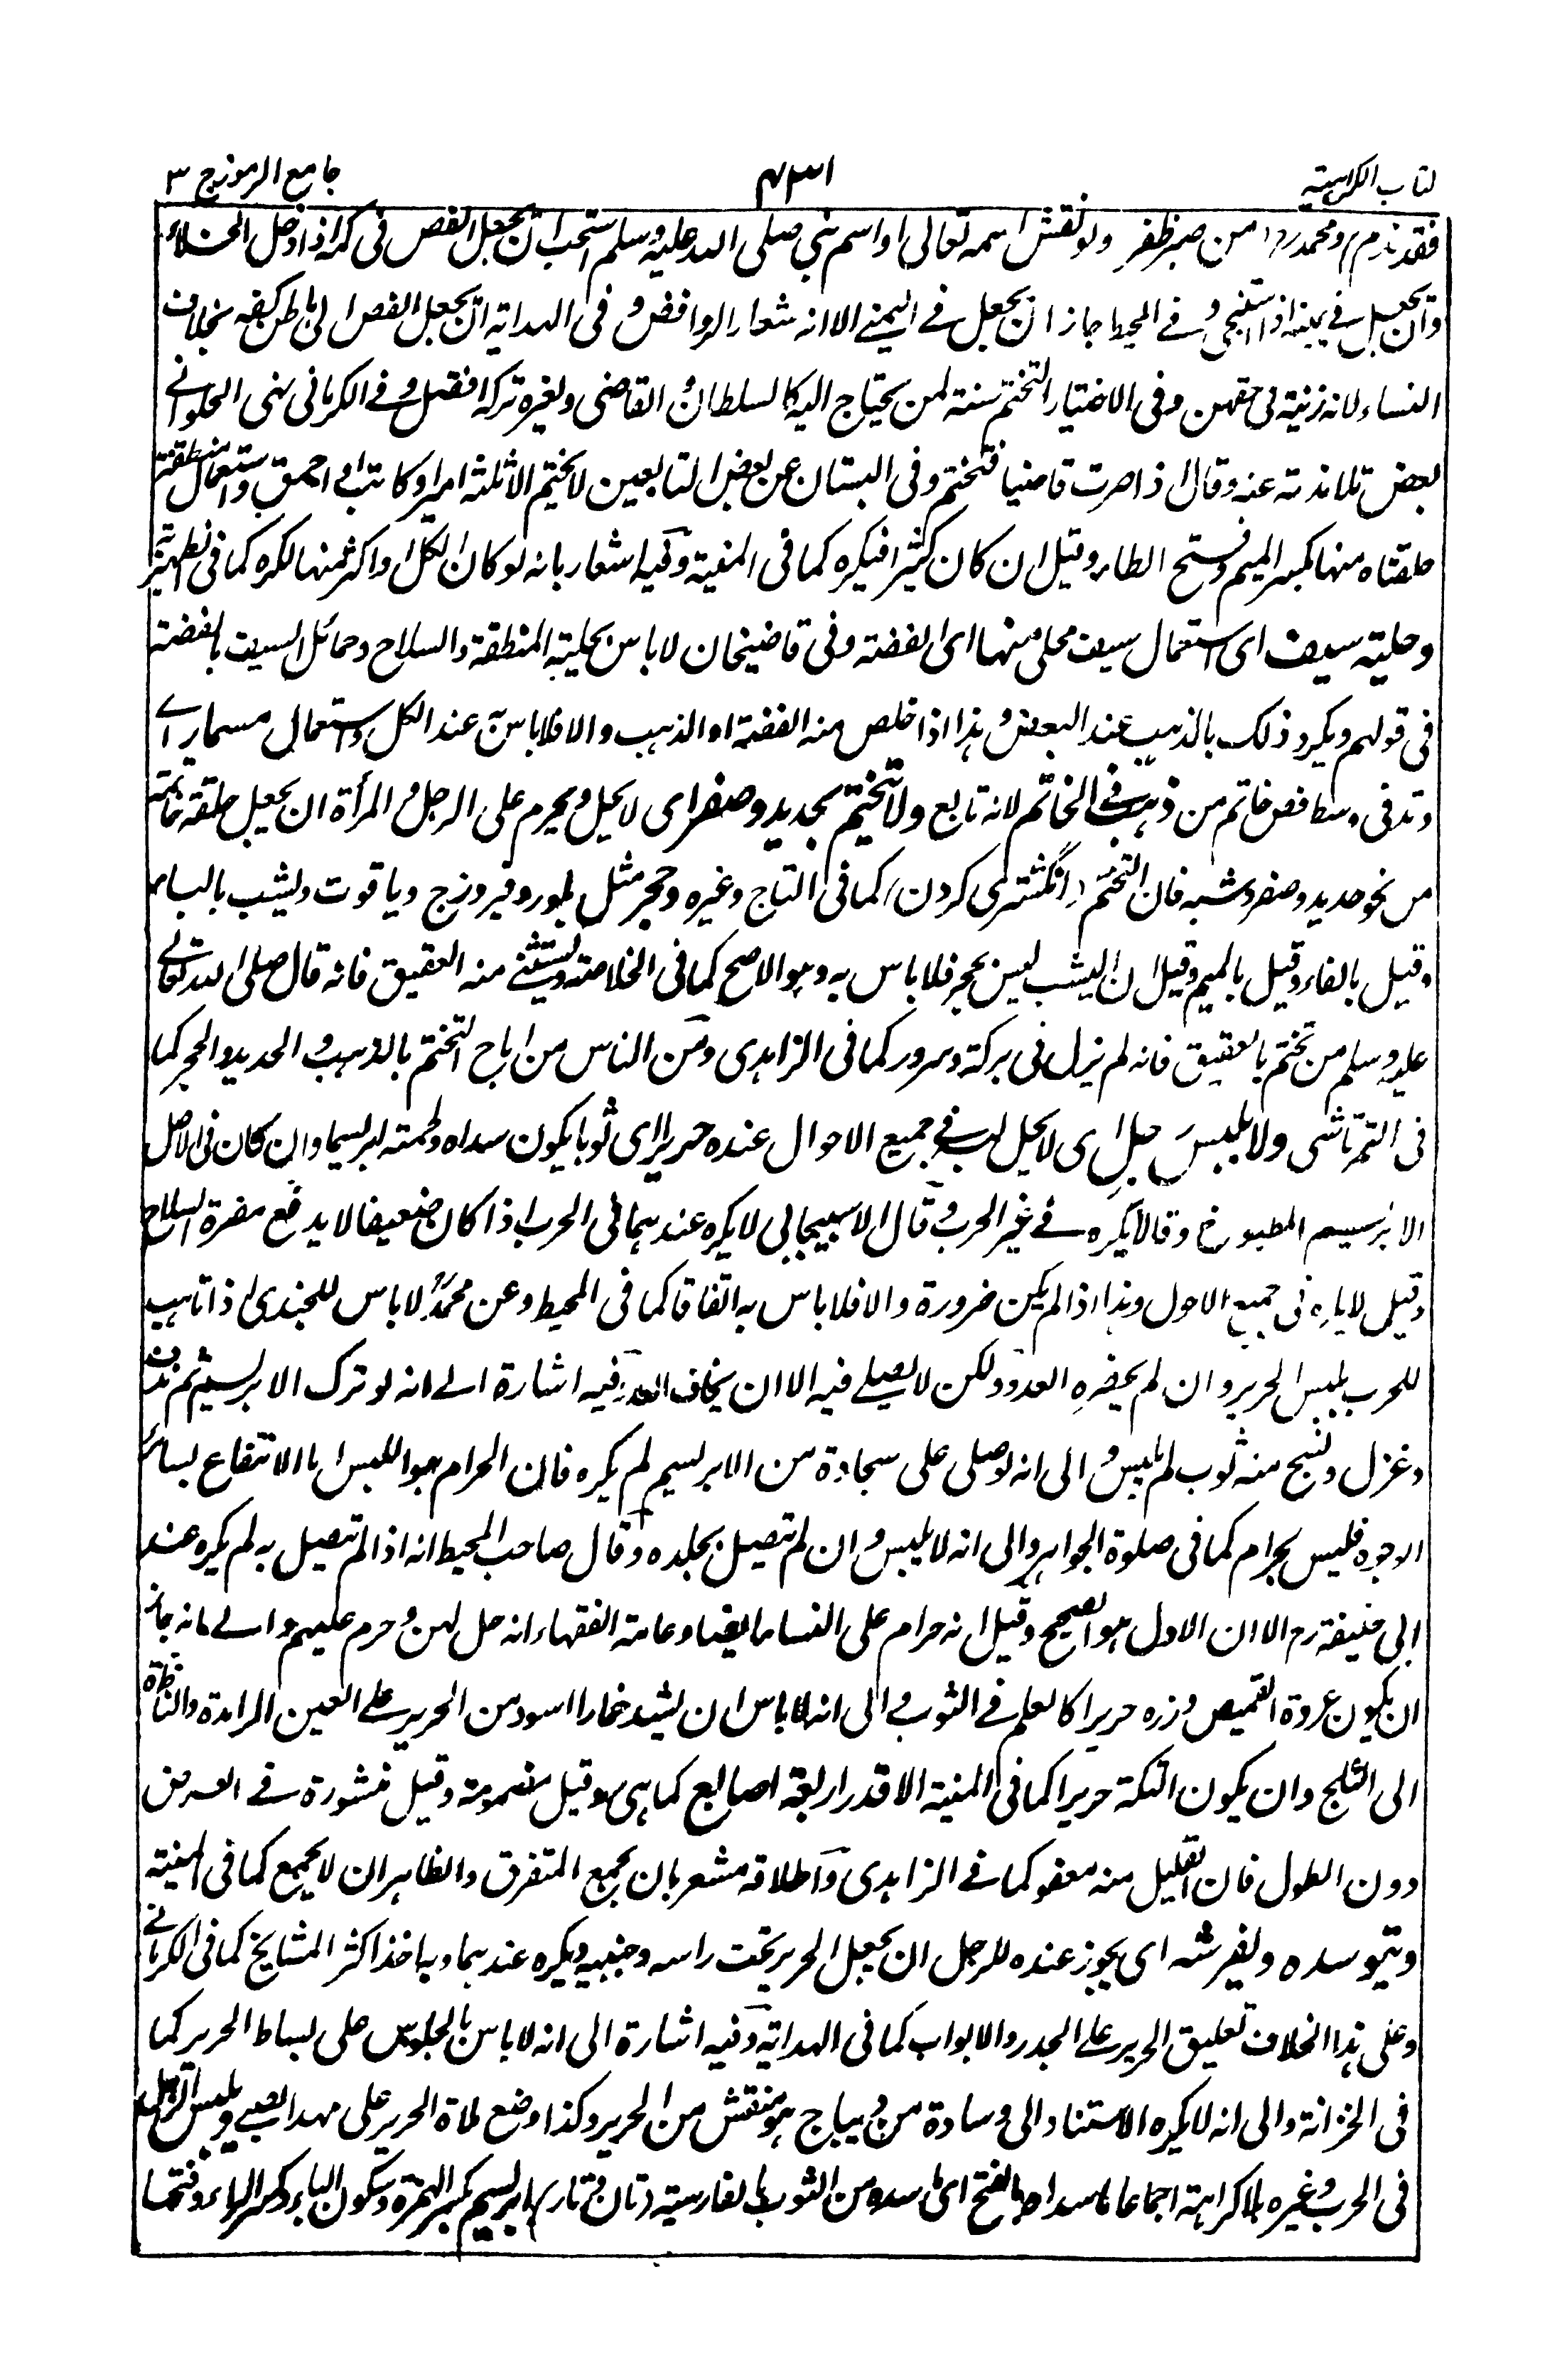 كتاب الكراهية
٤٣١
جامع الرموز ج ٣
ومحمد رح من صبر ظفر ولو نقش اسمه تعالى او اسم نبي صلى الله عليه وسلم استحب ان يجعل الفص في كمه اذا دخل الخلاء
وان يجعل في يمينه اذا استنجى وفي المحيط جاز ان يجعل في اليمنى الا انه شعار الروافض وفي الهداية ان يجعل الفص الى باطن كفه بخلاف
النساء لانه زينة في حقهن وفي الاختيار التختم سنة لمن يحتاج اليه كالسلطان والقاضي ولغيره تركه افضل وفي الكرماني نهى الحلواني
بعض تلامذته عنه وقال اذا صرت قاضيا فتختم وفي البستان عن بعض التابعين لا يختم الا ثلثة امير او كاتب او احمق واستعمال منطقة
حلقتاه منها بكسر الميم وفتح الطاء وقيل ان كان كثيرا فيكره كما في المنية وفيه اشعار بانه لو كان الكل او اكثر منها لكره كما في الظهيرية
وحلية سيف اى استعمال سيف محلى منها اى الفضة وفي قاضيخان لا باس بحلية المنطقة والسلاح وحمائل السيف بالفضة
في قولهم ويكره ذلك بالذهب عند البعض وهذا اذا خلص منه الفضة او الذهب والا فلا باس به عند الكل واستعمال مسمار اے
وتد في وسط فص خاتم من ذهب في الخاتم لانه تابع ولا يتختم بحديد وصفر اى لا يحل ويحرم على الرجل والمرأة ان يجعل حلقة خاتمه
من نحو حديد وصفر وشبه فان التختم (انگشتری كردن) كما في التاج وغيره وحجر مثل بلور وفيروزج وياقوت ويشب بالباء
وقيل بالفاء وقيل بالميم وقيل ان اليشب ليس بحجر فلا باس به وهو الاصح كما في الخلاصة ويستثنى منه العقيق فانه قال صلى الله تعالى
عليه وسلم من تختم بالعقيق فانه لم يزل في بركة وسرور كما في الزاهدى ومن الناس من اباح التختم بالذهب والحديد والحجر كما
في التمرتاشى ولا يلبس رجل اى لا يحل له في جميع الاحوال عنده حريرا اى ثوبا يكون سداه ولحمته ابريسما وان كان في الاصل
الابريسم المطبوخ وقالا يكره في غير الحرب وقال الاسبيجابى لا يكره عندهما في الحرب اذا كان ضعيفا لا يدفع مضرة السلاح
وقيل في جميع الاحوال وهذا اذا لم يكن ضرورة والا فلا باس به اتفاقا كما في المحيط وعن محمد لا باس للجندى اذا تاهب
للحرب بلبس الحرير وان لم يحضره العدو ولكن لا يصلى فيه الا ان يخاف العدو وفيه اشارة الى انه لو ترك الابريسم ثم ندف
وغزل ونسج منه ثوب لم يلبس والى انه لو صلى على سجادة من الابريسم لم يكره فان الحرام هو اللبس اما الانتفاع بسائر
الوجوه فليس بحرام كما في صلوة الجواهر والى انه لا يلبس وان لم تتصل بجلده وقال صاحب المحيط انه اذا لم تتصل به لم يكره عند
ابى حنيفة رح الا ان الاول هو الصحيح وقيل انه حرام على النساء ايضا وعامة الفقهاء انه حل لهن وحرم عليهم والى انه جاز
ان يكون عروة القميص وزره حريرا كالعلم في الثوب والى انه لا باس ان يشد خمارا اسود من الحرير على العين الرامدة والناظرة
الى الثلج وان يكون التكة حريرا كما في المنية الا قدر اربعة اصابع كما هى وقيل مضمومة وقيل منشورة في العرض
دون الطول فان القليل منه معفو كما في الزاهدى واطلاقه مشعر بان يجمع المتفرق والظاهر ان لا يجمع كما في المنية
ويتوسده ويفرشه اى يجوز عنده للرجل ان يجعل الحرير تحت راسه وجنبيه ويكره عندهما وبه اخذ اكثر المشايخ كما في الكرماني
وعلى هذا الخلاف تعليق الحرير على الجدر والابواب كما في الهداية وفيه اشارة الى انه لا باس بالجلوس على بساط الحرير كما
في الخزانة والى انه لا يكره الاستناد الى وسادة من ديباج هو منقش من الحرير وكذا وضع ملاة الحرير على مهد الصبى ويلبس الرجل
في الحرب وغيره بلا كراهة اجماعا ما سداه بالفتح اى سده من الثوب بالفارسية (تان وتار) ابريسم بكسر الهمزة وسكون الباء وكسر الراء وفتحها